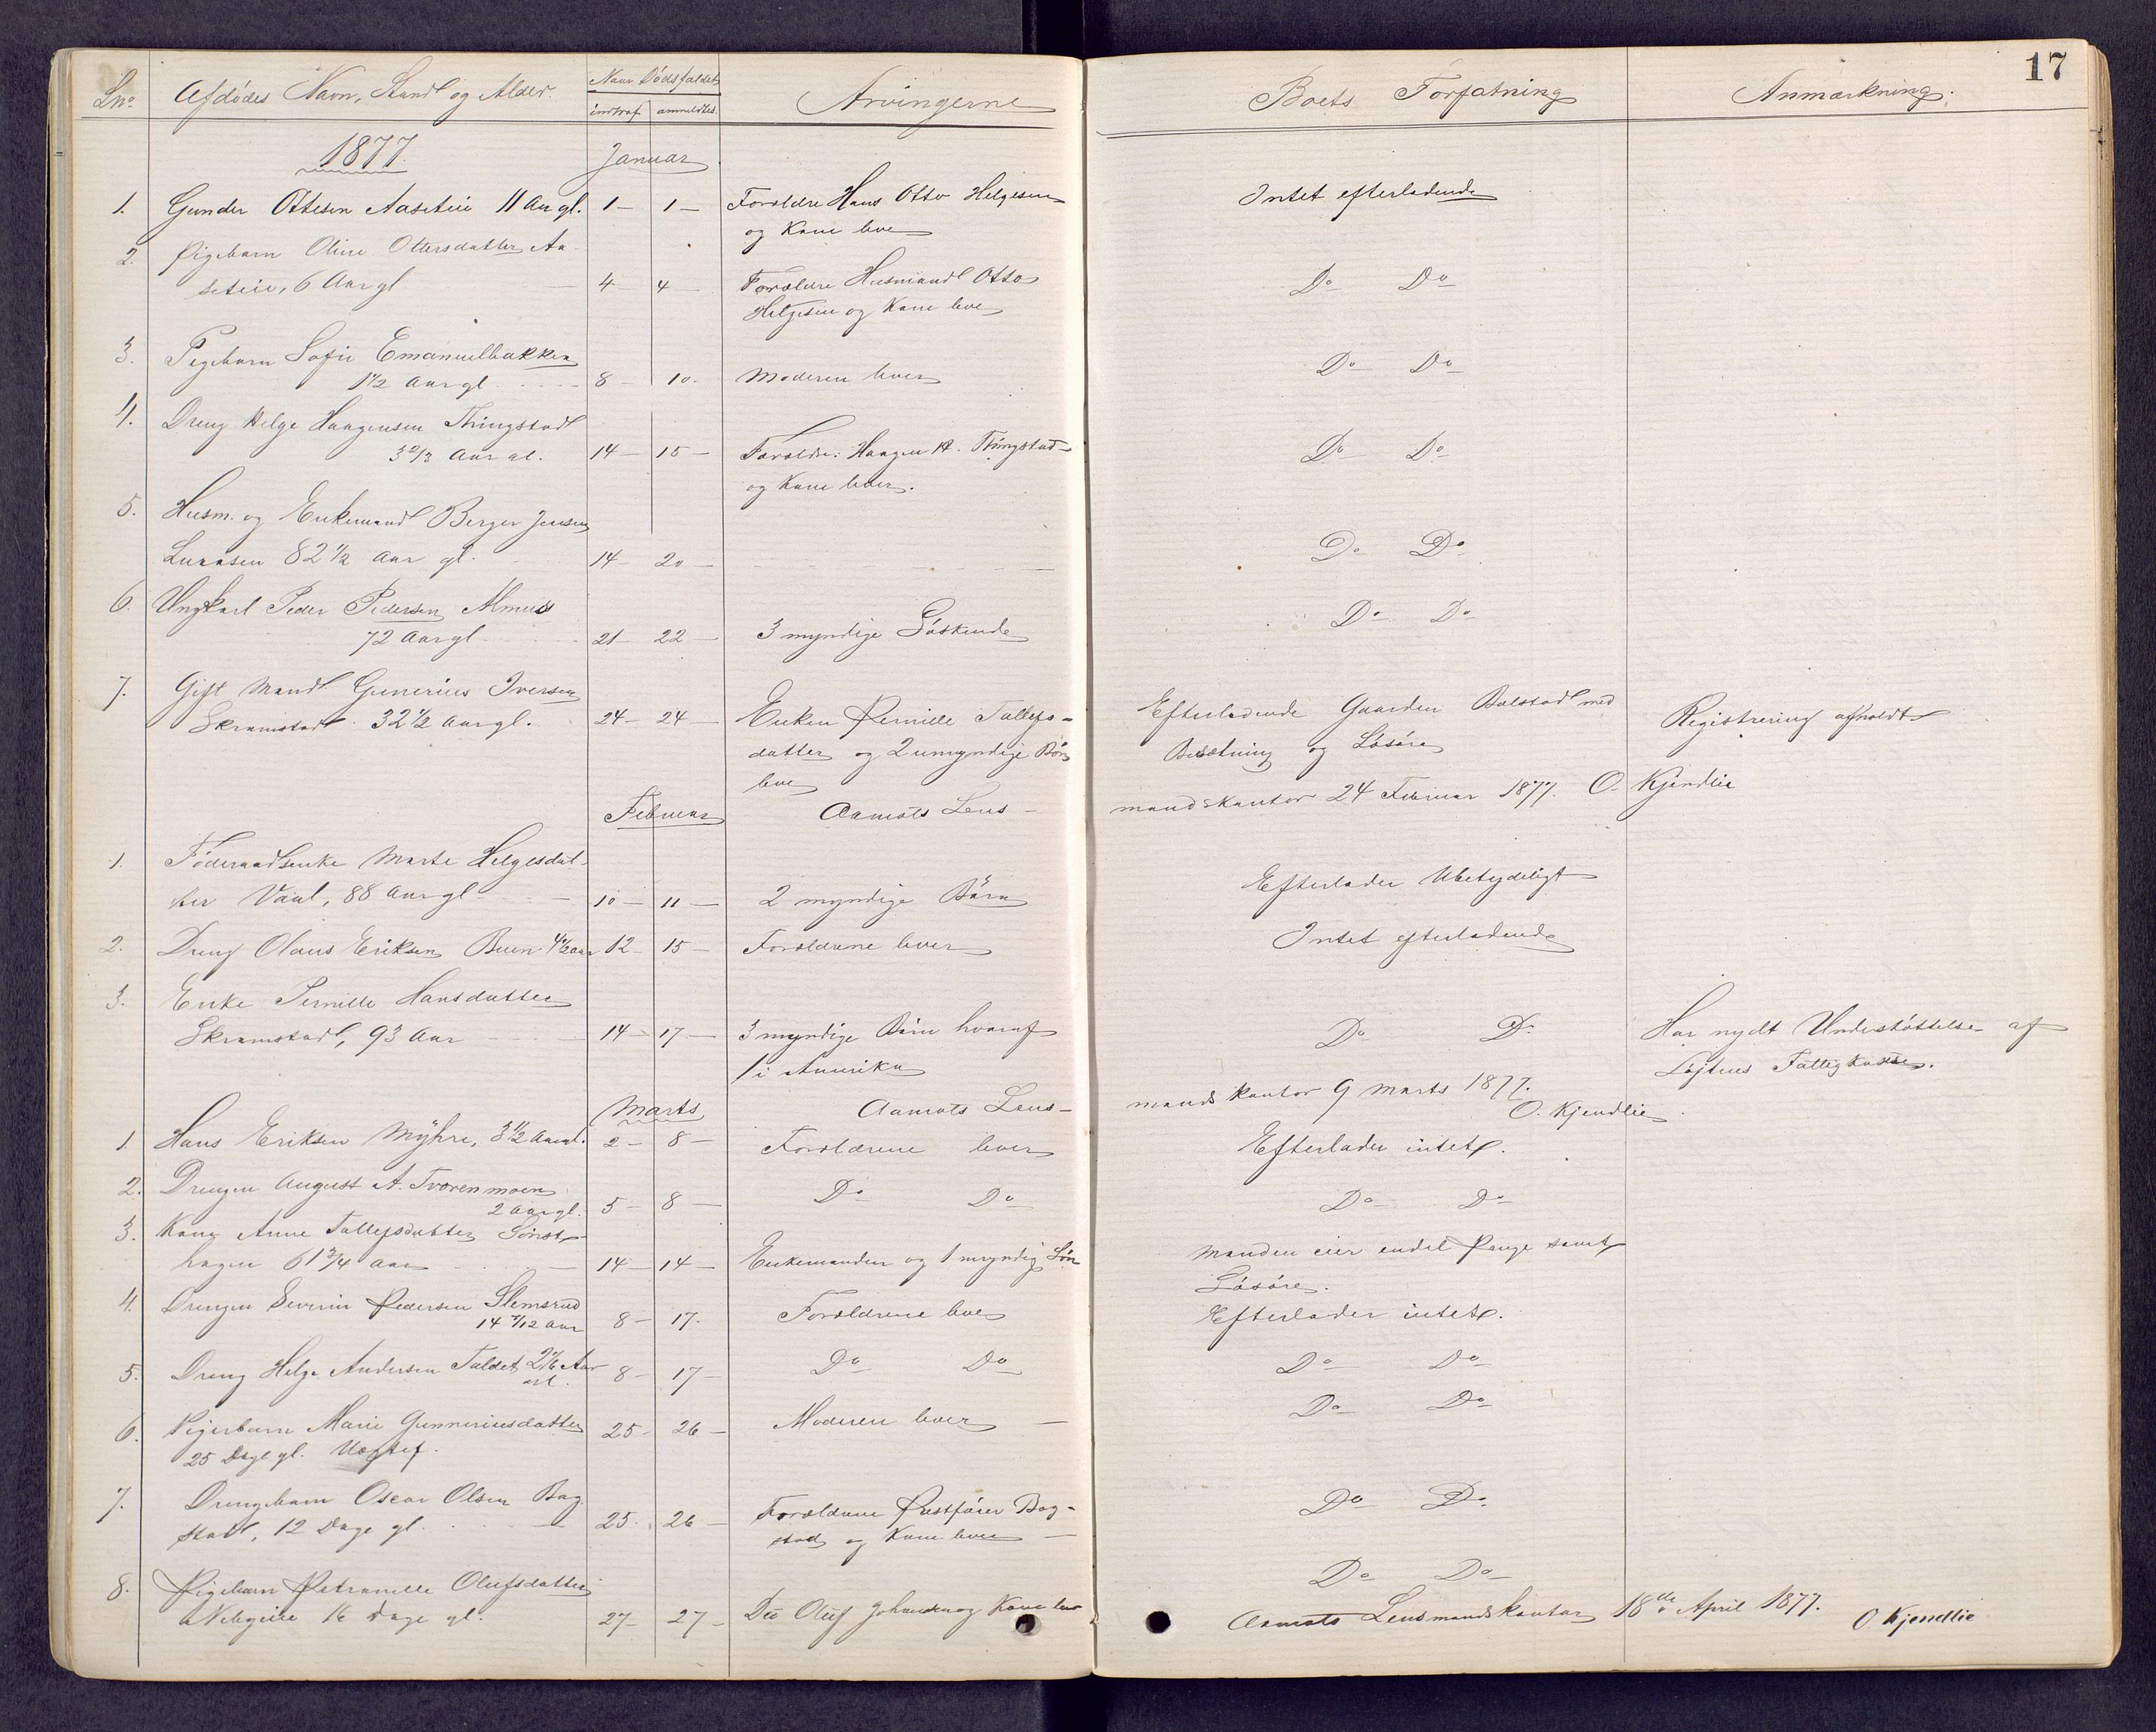 17
Lno Afdødes Navn, Stand og Alder. Naar Dødsfaldet Arvingerne Boets Forfatning Anmærkning.
indtraf anmeldtes.
1877. Januar
1. Gunder Ottesen Aaseteie 11 Aar gl. 1 - 1 - Forældre Hans Otto Helgesen Intet efterladende
og Kone leve
2. Pigebarn Oline Ottersdatter Aa-
seteie, 6 Aar gl 4 - 4 - Forældre Husmand Otto Do Do
Helgesen og Kone leve
3. Pigebarn Sofie Emanuelbakken
1 1/2 Aar gl 8 - 10. Moderen lever Do Do
4. Dreng Helge Haagensen Thingstad
Aar gl. 14 - 15 - Forældre: Haagen H. Thingstad Do Do
og Kone lever.
5. Husm. og Enkemand Berger Jensen
82 1/2 Aar gl. 14 - 20 - Do Do
6. Ungkarl Peder Pedersen
72 Aar gl 21 - 22 - 3 myndige Søskende Do Do
7. Gift Mand Gunerius Iversen
Skramstad. 32 1/2 Aar gl. 24 - 24 - Enken Pernille Tollefs- Efterladende Gaarden Bolstad med Registrering afholdt
datter og 2 umyndige Børn Besætning og Løsøre
leve
Februar Aamots Lens- mandskontor 24 Februar 1877. O. Kjendlie
1. Føderaadsenke Marte Helgesdat-
ter Vaal, 88 Aar gl 10 - 11 - 2 myndige Børn Efterlader Ubetydeligt
2. Dreng Olaus Eriksen Buen 4 1/6 Aar 12 - 15 - Forældrene lever Intet efterladende
3. Enke Pernille Hansdatter
Skramstad, 93 Aar 14 - 17 - 3 myndige Børn hvoraf Do Do Har nydt Understøttelse af
1 i Amerika Løjtens Fattigkasse.
Marts Aamots Lens- mandskontor 9 Marts 1877. O. Kjendlie
1. Hans Eriksen Myhre, 3 1/2 Aar gl. 2 - 8 - Forældrene lever Efterlader intet.
2. Drengen August A. Tvorenmoen
2 Aar gl. 5 - 8 - Do Do Do Do
3. Kone Anne Tollefsdatter Sønst-
hagen 61 3/4 Aar 14 - 14 - Enkemanden og 1 myndig Søn Manden eier endel Penge samt
Løsøre.
4. Drengen Severin Pedersen Slemsrud
14 7/12 Aar 8 - 17. Forældrene leve Efterlader intet.
5. Dreng Helge Andersen Faldet, 2 1/6 Aar
gl. 8 - 17 - Do Do Do Do
6. Pigebarn Marie Gunneriusdatter 25 - 26 - Moderen lever Do Do
25 Dage gl.
7. Drengebarn Oscar Olsen Bag-
stad, 12 Dage gl. 25. 26 - Forældrene Bag- Do Do
stad og Kone leve
8. Pigebarn Petronelle Olufsdatter Do Do
16 Dage gl. 27 - 27 - Do Oluf Johnsen og Kone leve
Aamots Lensmandskontor 18de April 1877. O. Kjendlie